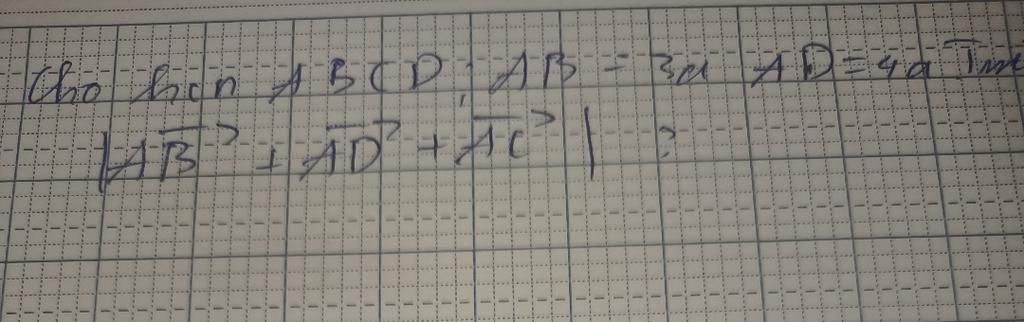 Cho hcn ABCD, AB = 3a AD = 4a Tính
|AB⃗ + AD⃗ + AC⃗| ?